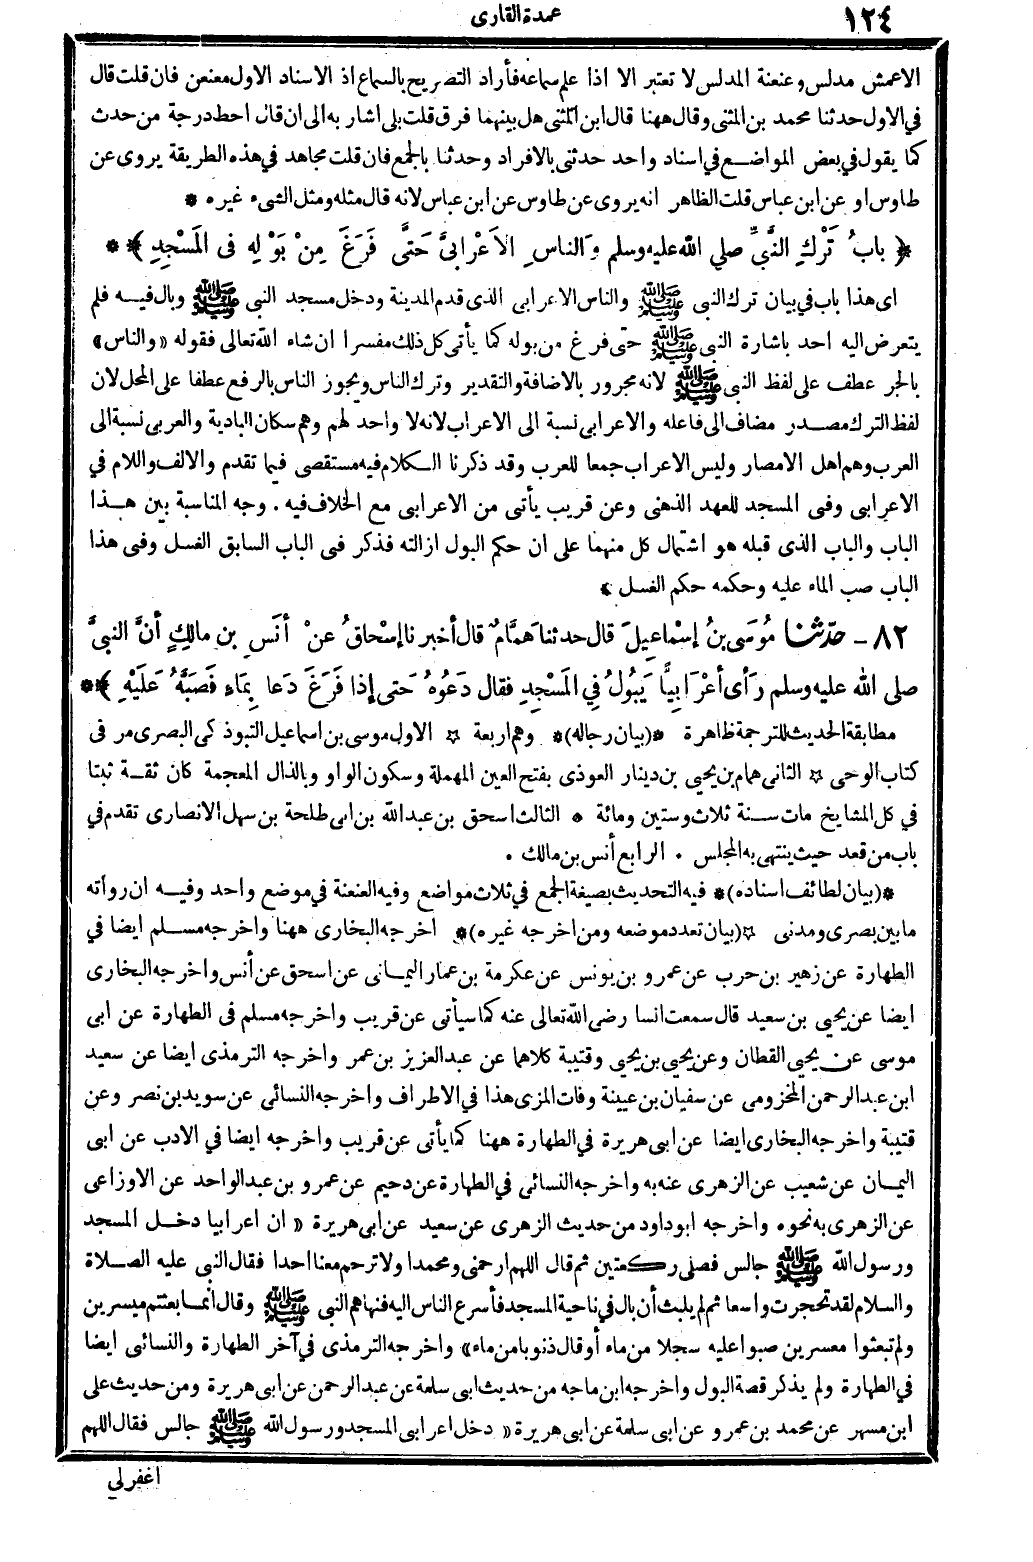 ١٢٤
عمدة القارى
الاعمش مدلس وعنعنة المدلس لا تعتبر الا اذا علم سماعه فأراد التصريح بالسماع اذ الاسناد الاول معنعن فان قلت قال
في الاول حدثنا محمد بن المثنى وقال ههنا قال ابن المثنى هل بينهما فرق قلت بلى اشار به الى ان قال احط درجة من حدث
كما يقول في بعض المواضع في اسناد واحد حدثنى بالافراد وحدثنا بالجمع فان قلت مجاهد في هذه الطريقة يروى عن
طاوس او عن ابن عباس قلت الظاهر انه يروى عن طاوس عن ابن عباس لانه قال مثله ومثل الشىء غيره *
﴿ بابُ تَرْكِ النَّبيِّ صلي الله عليه وسلم وَالناسِ الأَعْرَابىَّ حَتَّى فَرَغَ مِنْ بَوْلِهِ فى المَسْجِدِ ﴾ *
اى هذا باب في بيان ترك النبى ﷺ والناس الاعرابى الذى قدم المدينة ودخل مسجد النبى ﷺ وبال فيه فلم
يتعرض اليه احد باشارة النبى ﷺ حتى فرغ من بوله كما يأتى كل ذلك مفسرا ان شاء الله تعالى فقوله «والناس»
بالجر عطف على لفظ النبى ﷺ لانه مجرور بالاضافة والتقدير وترك الناس ويجوز الناس بالرفع عطفا على المحل لان
لفظ الترك مصدر مضاف الى فاعله والاعرابى نسبة الى الاعراب لانه لا واحد لهم وهم سكان البادية والعربى نسبة الى
العرب وهم اهل الامصار وليس الاعراب جمعا للعرب وقد ذكرنا الكلام فيه مستقصى فيما تقدم والالف واللام في
الاعرابى وفى المسجد للعهد الذهنى وعن قريب يأتى من الاعرابى مع الخلاف فيه . وجه المناسبة بين هذا
الباب والباب الذى قبله هو اشتمال كل منهما على ان حكم البول ازالته فذكر فى الباب السابق الغسل وفى هذا
الباب صب الماء عليه وحكمه حكم الغسل *
٨٢ - حدّثنا مُوسَى بنُ إسْماعِيلَ قال حدثنا هَمَّامٌ قال أخبرنا إسْحاقُ عنْ أنَسِ بنِ مالِكٍ أنَّ النبيَّ
صلى الله عليه وسلم رَأى أعْرَابِيًّا يَبُولُ في المَسْجِدِ فقال دَعُوهُ حَتى إذا فَرَغَ دَعا بِمَاءٍ فَصَبَّهُ عَلَيْهِ ﴾ *
مطابقة الحديث للترجمة ظاهرة *(بيان رجاله)* وهم اربعة ☆ الاول موسى بن اسماعيل التبوذكى البصرى مر فى
كتاب الوحى ☆ الثانى همام بن يحيى بن دينار العوذى بفتح العين المهملة وسكون الواو وبالذال المعجمة كان ثقة ثبتا
في كل المشايخ مات سنة ثلاث وستين ومائة * الثالث اسحق بن عبد الله بن ابى طلحة بن سهل الانصارى تقدم في
باب من قعد حيث ينتهى به المجلس . الرابع أنس بن مالك .
*(بيان لطائف اسناده)* فيه التحديث بصيغة الجمع في ثلاث مواضع وفيه العنعنة في موضع واحد وفيه ان رواته
ما بين بصرى ومدنى ☆(بيان تعدد موضعه ومن اخرجه غيره)* اخرجه البخارى ههنا واخرجه مسلم ايضا في
الطهارة عن زهير بن حرب عن عمرو بن يونس عن عكرمة بن عمار اليمانى عن اسحق عن أنس واخرجه البخارى
ايضا عن يحيى بن سعيد قال سمعت انسا رضى الله تعالى عنه كما سيأتى عن قريب واخرجه مسلم فى الطهارة عن ابى
موسى عن يحيى القطان وعن يحيى بن يحيى وقتيبة كلاهما عن عبد العزيز بن عمر واخرجه الترمذى ايضا عن سعيد
ابن عبد الرحمن المخزومى عن سفيان بن عيينة وفات المزى هذا في الاطراف واخرجه النسائى عن سويد بن نصر وعن
قتيبة واخرجه البخارى ايضا عن ابى هريرة في الطهارة ههنا كما يأتى عن قريب واخرجه ايضا في الادب عن ابى
اليمان عن شعيب عن الزهرى عنه به واخرجه النسائى في الطهارة عن دحيم عن عمرو بن عبد الواحد عن الاوزاعى
عن الزهرى به نحوه واخرجه ابو داود من حديث الزهرى عن سعيد عن ابى هريرة « ان اعرابيا دخل المسجد
ورسول الله ﷺ جالس فصلى ركعتين ثم قال اللهم ارحمنى ومحمدا ولا ترحم معنا احدا فقال النبى عليه الصلاة
والسلام لقد تحجرت واسعا ثم لم يلبث أن بال في ناحية المسجد فأسرع الناس اليه فنهاهم النبى ﷺ وقال انما بعثتم ميسرين
ولم تبعثوا معسرين صبوا عليه سجلا من ماء أو قال ذنوبا من ماء» واخرجه الترمذى في آخر الطهارة والنسائى ايضا
في الطهارة ولم يذكر قصة البول واخرجه ابن ماجه من حديث ابى سلمة عن عبد الرحمن عن ابى هريرة ومن حديث على
ابن مسهر عن محمد بن عمرو عن ابى سلمة عن ابى هريرة « دخل اعرابى المسجد ورسول الله ﷺ جالس فقال اللهم
اغفرلى